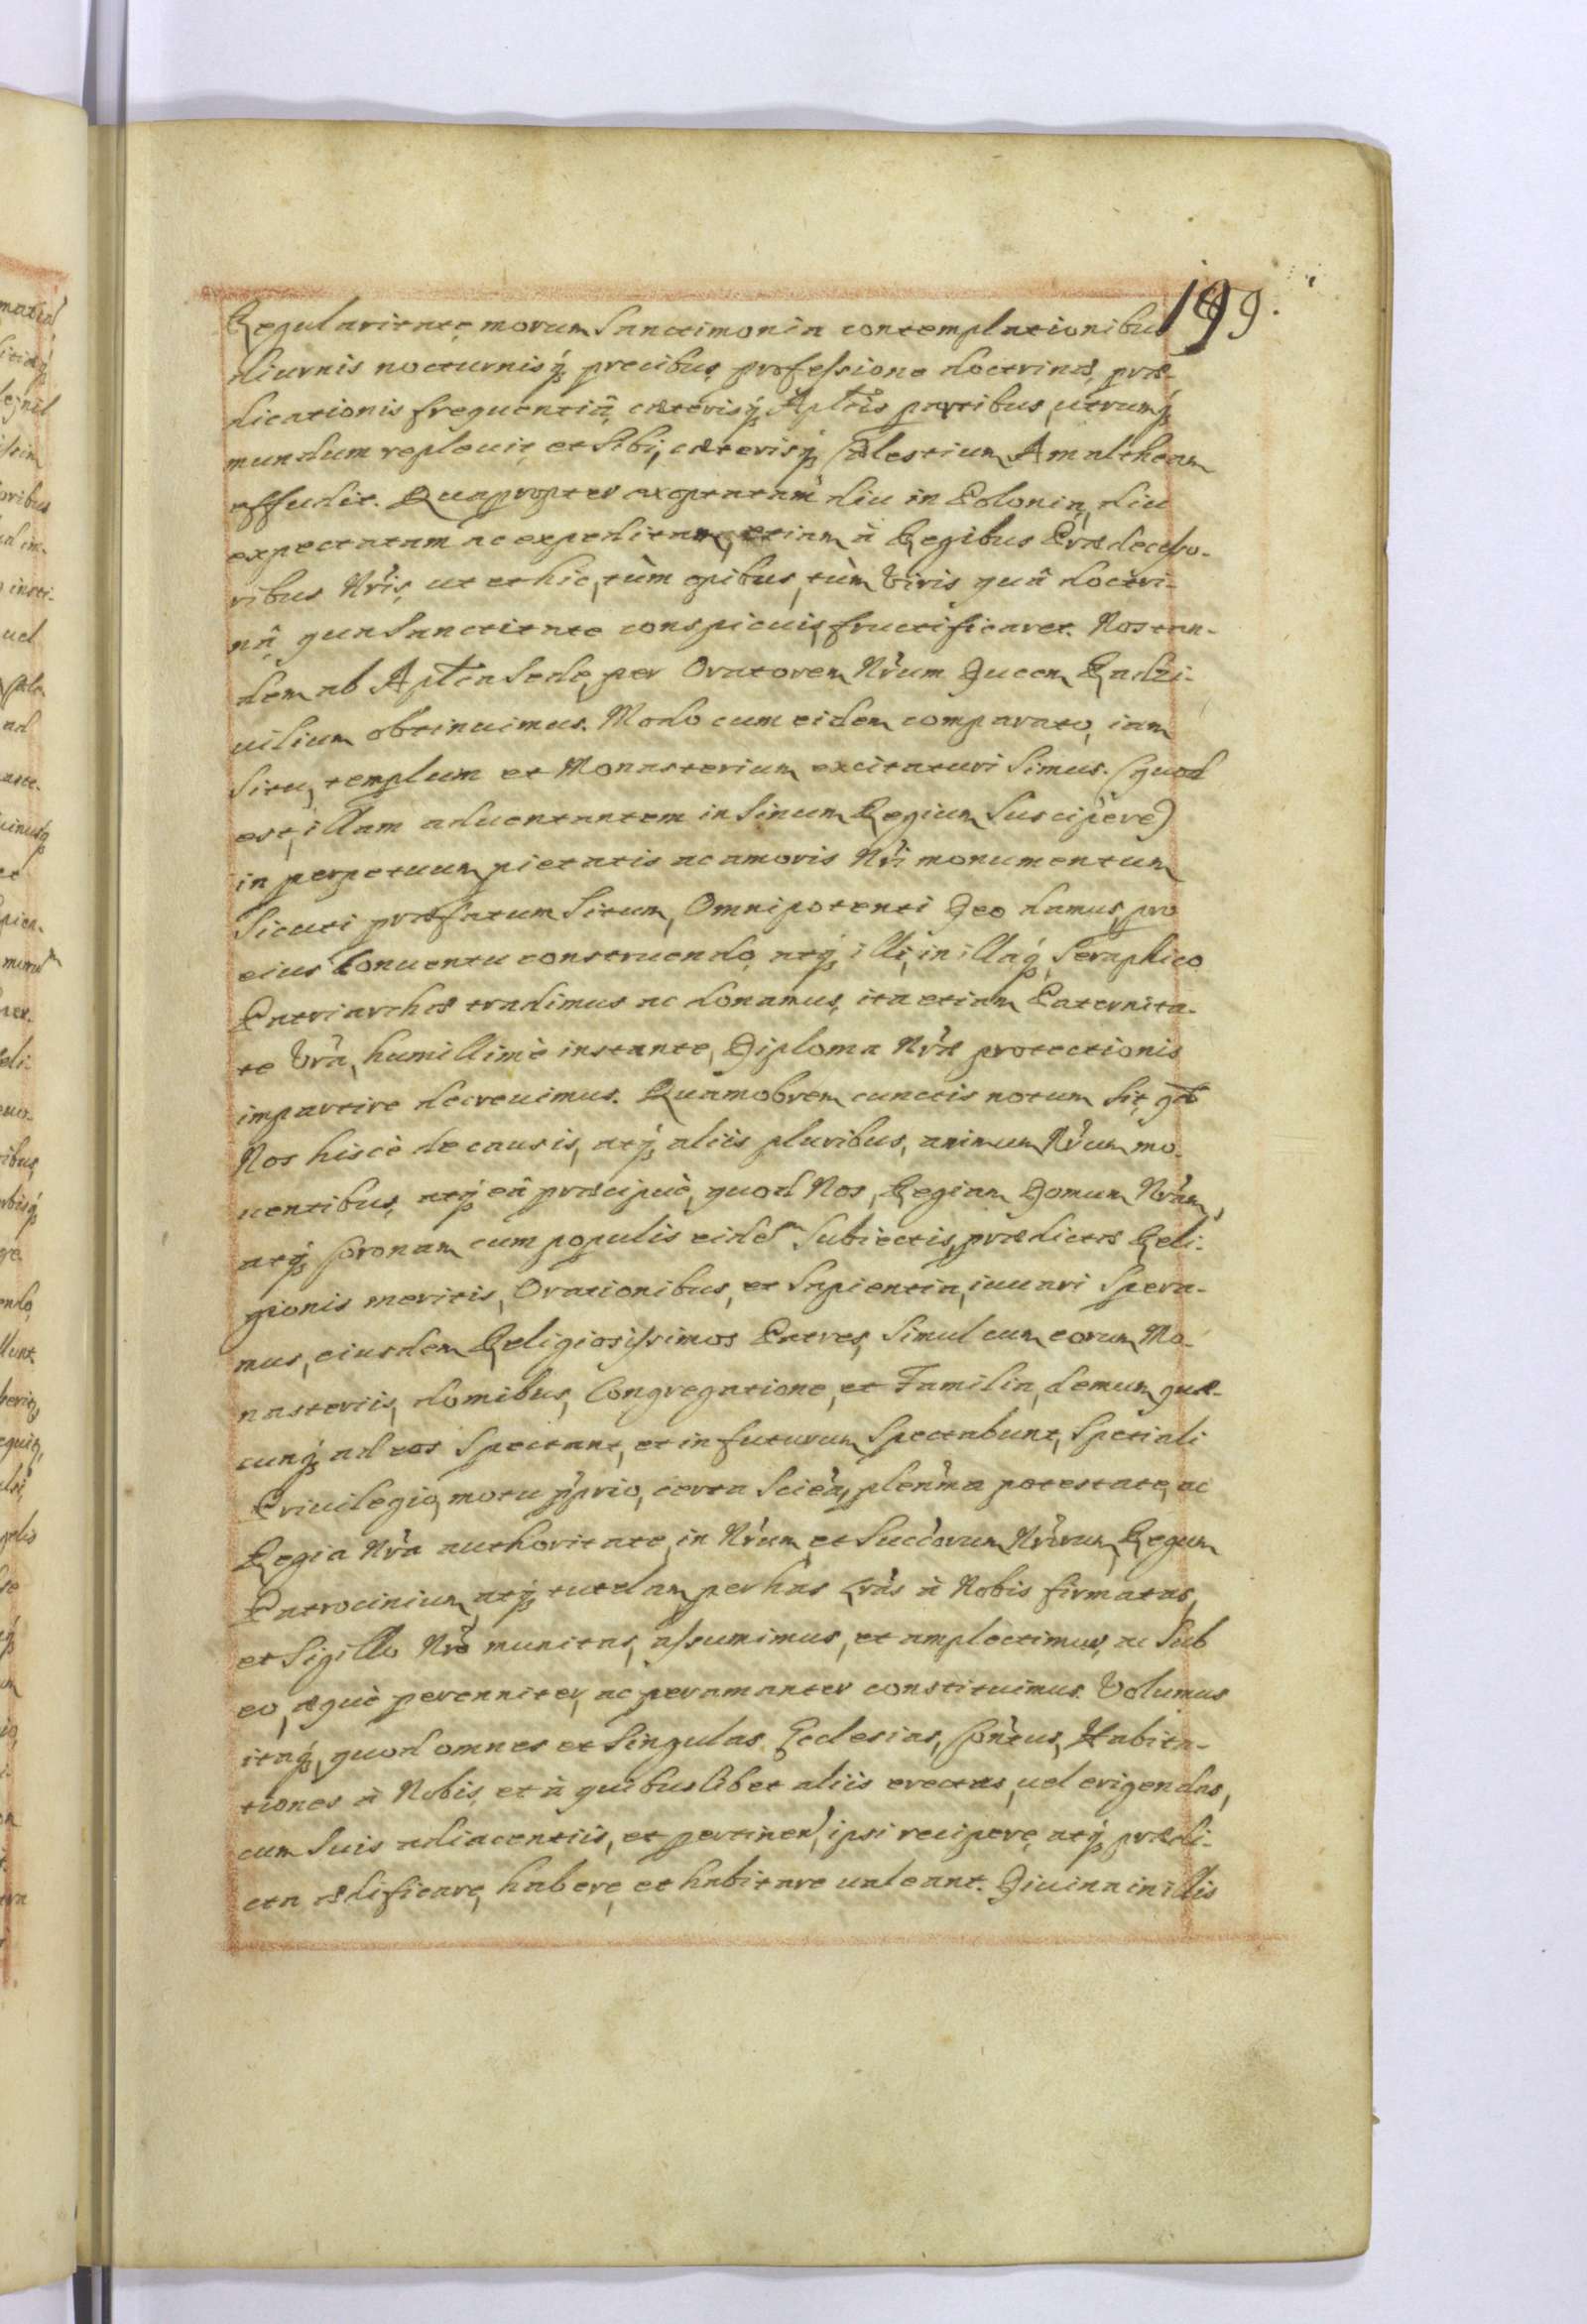 199.
Regularitate, morum Sanctimonia contemplationibus
diurnis nocturnisq́ꝫ precibus, professione doctrinæ, præ-
dicationis frequentiâ, cæterisq́ꝫ Aplĩcis partibus, utrumq́ꝫ
mundum repleuit, et Sibi, cæterisq́ꝫ Cælestium Amaltheam
effudit. Quapropter exoptatam diu in Polonia, diu
expectatam ac expeditam, etiam à Regibus Prædecesso-
ribus Nr̃is, ut et hic, tùm opibus, tùm Viris quâ doctri-
nâ, qua Sanctitate conspicuis, fructificaret. Nos tan-
dem ab Aplĩca Sede, per Oratorem Nr̃um Ducem Radzi-
uilium obtinuimus. Modo cum eidem comparato, iam
Situ, templum et Monasterium excitaturi Simus. (quod
est, illam aduentantem in Sinum Regium Suscipere)
in perpetuum pietatis ac amoris Nr̃i monumentum
Sicuti præfatum Situm, Omnipotenti Deo damus, pro
eius Conuentu construendo, atq́ꝫ illi, in illaq́ꝫ Seraphico
Patriarchæ tradimus ac donamus, ita etiam Paternita-
te Vr̃a, humillimè instante, Diploma Nr̃æ protectionis
impartire decreuimus. Quamobrem cunctis notum Sit, qđ
Nos hiscè de causis, atq́ꝫ aliis pluribus, animum Nr̃um mo-
uentibus, atq́ꝫ eâ præcipuè, quod Nos, Regiam Domum Nr̃am,
atq́ꝫ Coronam cum populis eidẽ Subiectis, prædictæ Reli-
gionis meritis, Orationibus, et Sapientia, iuuari Spera-
mus, eiusdem Religiosissimos Patres, Simul cum eorum Mo-
nasteriis, domibus, Congregatione, et Familia, demum quæ-
cunq́ꝫ ad eos Spectant, et in futurum Spectabunt, Spetiali
Priuilegio, motu pr̃prio, certa Sciẽa, plenr̃ma potestate, ac
Regia Nr̃a authoritate, in Nr̃um et Succõrum Nr̃orum Regum
Patrocinium, atq́ꝫ tutelam per has Lr̃as à Nobis firmatas,
et Sigillo Nr̃o munitas, assumimus, et amplectimur, ac Sub
eo, æquè perenniter, ac peramanter constituimus. Volumus
itaq́ꝫ, quod omnes et Singulas Ecclesias, Cõntus, Habita-
tiones à Nobis, et à quibuslibet aliis erectas, uel erigendas,
cum Suis adiacentiis, et pertinen̄, ipsi recipere, atq́ꝫ prædi-
cta ædificare, habere, et habitare ualeant. Diuina in illis